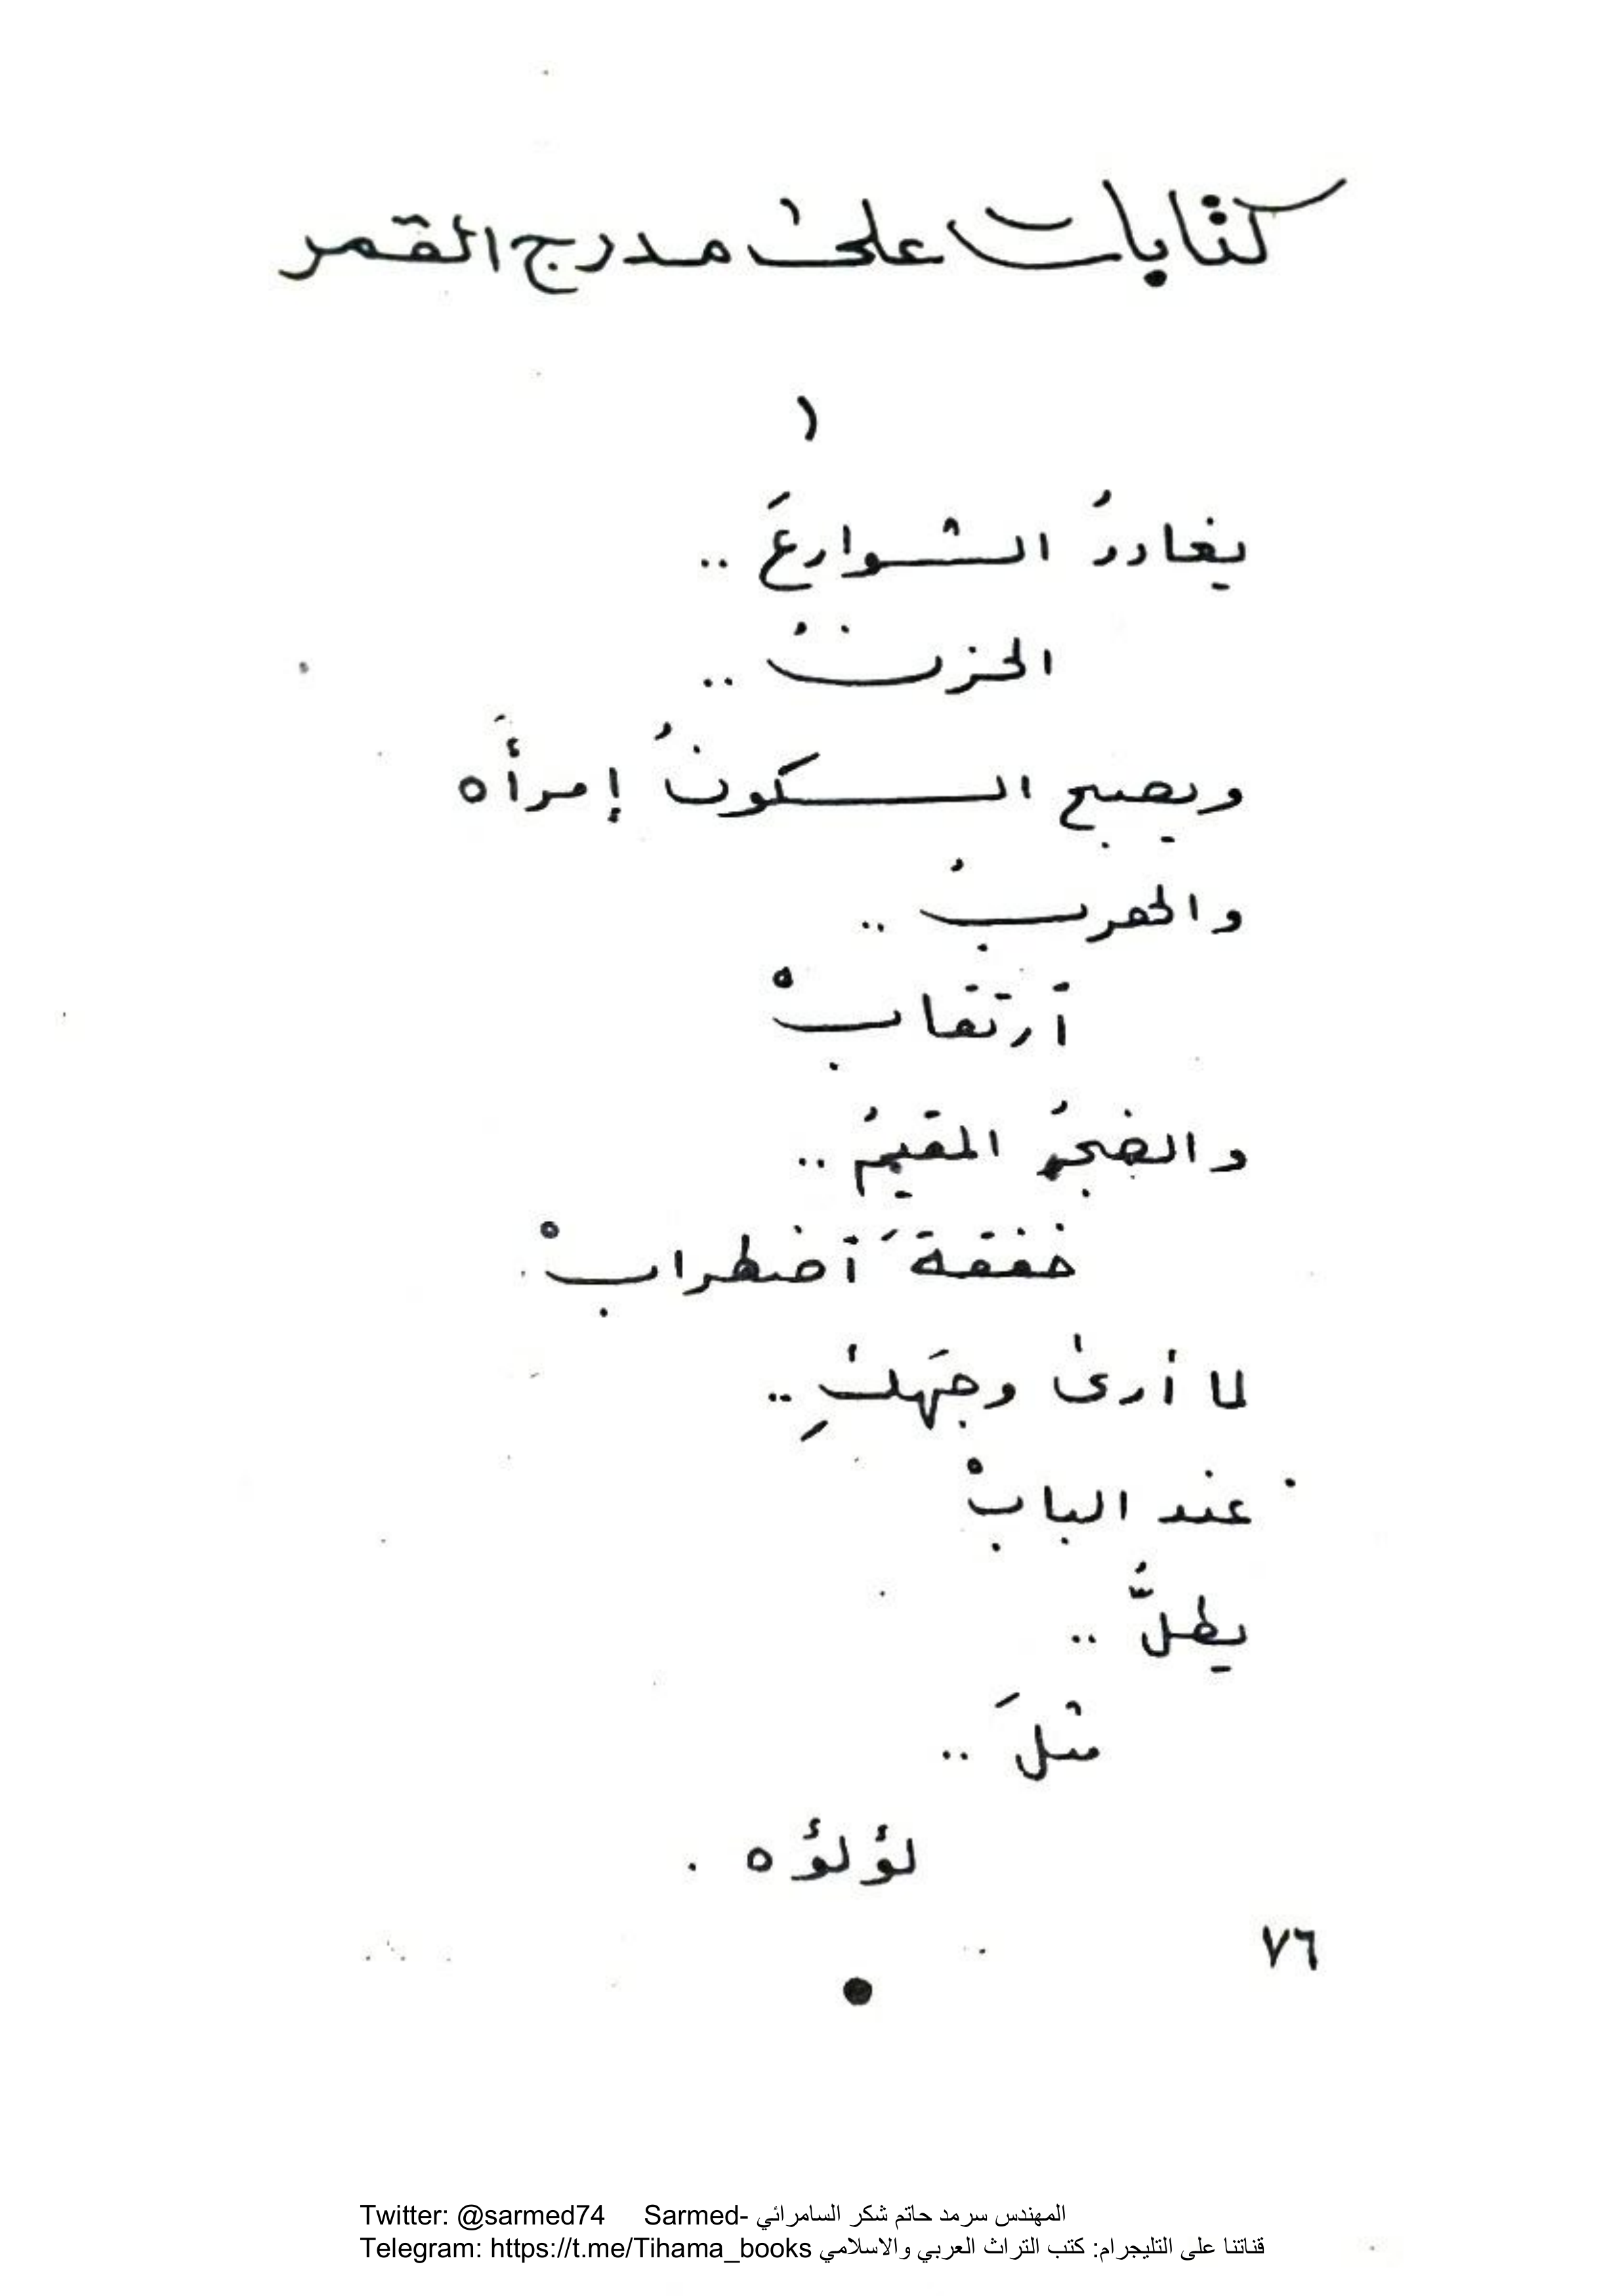 كتابات على مدرج القمر
١
يغادرُ الشوارعَ ..
الحزنُ ..
ويصبح السكونُ إمرأَه
والهربُ ..
آرتقابْ
والضجرُ المقيمُ ..
خفقةَ آضطرابْ
لما أرىٰ وجهَكِ ..
عند البابْ
يطلُّ ..
مثلَ ..
لؤلؤه .
٧٦
Twitter: @sarmed74 Sarmed- المهندس سرمد حاتم شكر السامرائي
Telegram: https://t.me/Tihama_books قناتنا على التليجرام: كتب التراث العربي والاسلامي